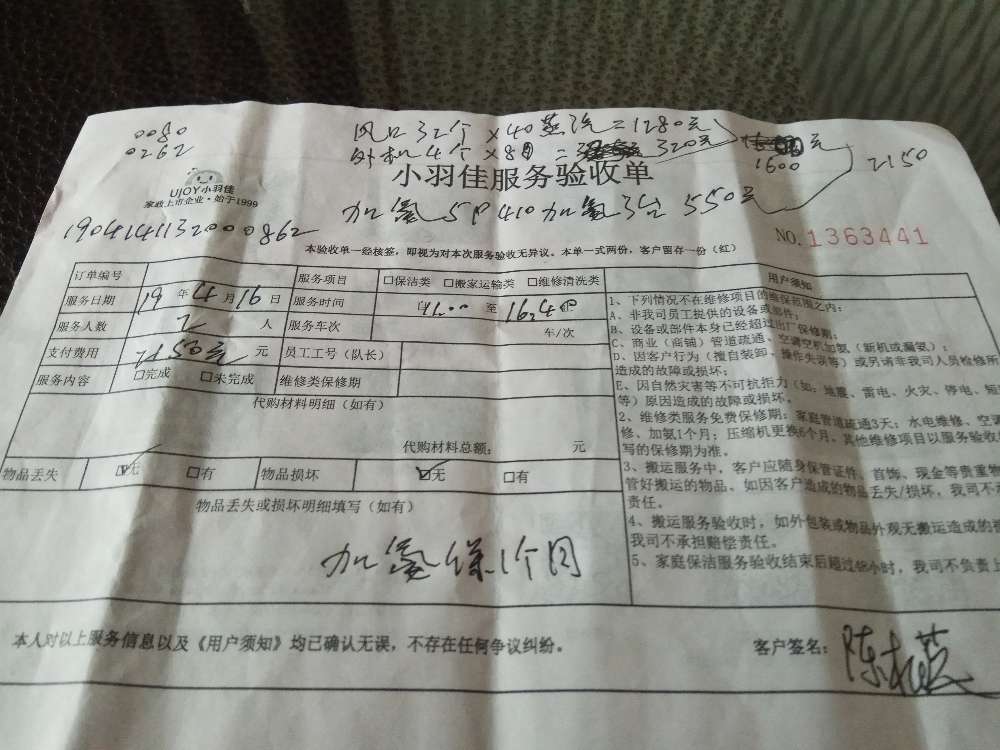 0080
0262
风口32个×40蒸汽=1280元
外机4个×80=320元
1600元
2150
UJOY小羽佳
家政上市企业·始于1999
小羽佳服务验收单
加氟5P410加氟3台 550元
1904141132000862
NO.1363441
本验收单一经核签，即视为对本次服务验收无异议。本单一式两份，客户留存一份（红）
订单编号 服务项目 □保洁类 □搬家运输类 □维修清洗类
服务日期 19年4月16日 服务时间 至
服务人数 2人 服务车次 车/次
支付费用 2150元 元 员工工号（队长）
服务内容 □完成 □未完成 维修类保修期
代购材料明细（如有）
代购材料总额： 元
物品丢失 ☑无 □有 物品损坏 ☑无 □有
物品丢失或损坏明细填写（如有）
加氟保1个月
用户须知
1、下列情况不在维修项目的维保范围之内：
A、非我司员工提供的设备或部件；
B、设备或部件本身已经超过出厂保修期；
C、商业（商铺）管道疏通、空调空机加氨（新机或漏氨）；
D、因客户行为（擅自装卸，操作失误等）或另请非我司人员检修所
造成的故障或损坏；
E、因自然灾害等不可抗拒力（如：地震、雷电、火灾、停电、短
等）原因造成的故障或损坏。
2、维修类服务免费保修期：家庭管道疏通3天；水电维修、空
修、加氨1个月；压缩机更换6个月。其他维修项目以服务验收
写的保修期为准。
3、搬运服务中，客户应随身保管证件、首饰、现金等贵重物
管好搬运的物品。如因客户造成的物品丢失/损坏，我司不承
责任。
4、搬运服务验收时，如外包装或物品外观无搬运造成的
我司不承担赔偿责任。
5、家庭保洁服务验收结束后超过48小时，我司不负责上
本人对以上服务信息以及《用户须知》均已确认无误，不存在任何争议纠纷。
客户签名：